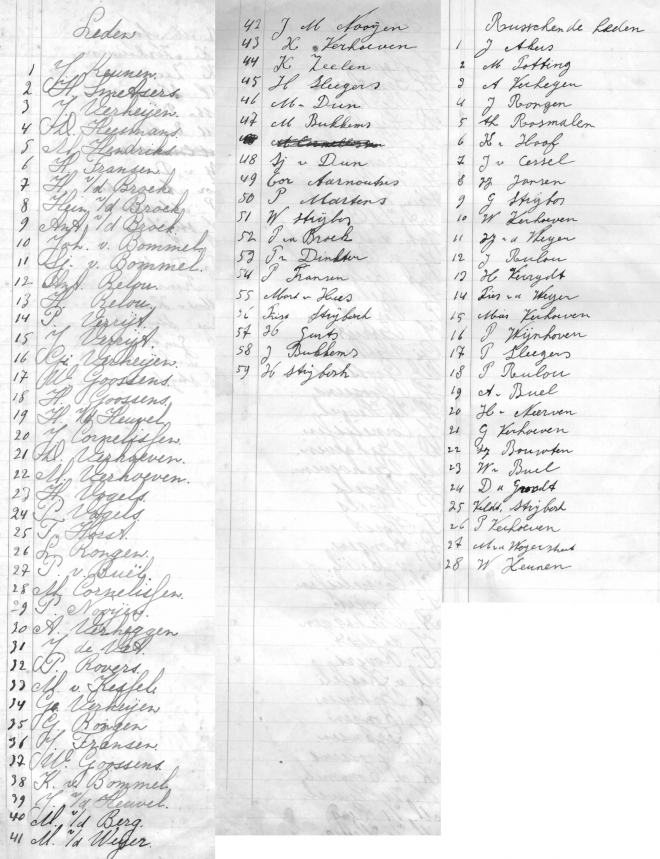 Leden
1 H. Keunen.
2 H. Smetsers.
3 J. Verheijen.
4 W. Huysmans.
5 M. Hendriks
6 H. Fransen.
7 H. v/d Broek.
8 Hein v/d Broek.
9 Ant. v/d Broek.
10 Joh. v. Bommel.
11 Gi. v. Bommel.
12 Ant. Relou.
13 H. Relou.
14 P. Verrijt.
15 J. Verrijt.
16 Gi. Verheijen.
17 W. Goossens.
18 H. Goossens.
19 H. v/d Heuvel.
20 J. Cornelissen.
21 W. Verhoeven.
22 M. Verhoeven.
23 H. Vogels.
24 P. Vogels.
25 T. Horst.
26 L. Rongen.
27 P. v. Buël.
28 M. Cornelissen.
29 P. Nooijen.
30 A. Verheggen
31 J. de Vet.
32 P. Rovers.
33 M. v. Kessel.
34 Ge. Verheijen.
35 G. Rongen
36 H. Fransen.
37 W. Goossens.
38 K. v. Bommel.
39 J. v/d Heuvel.
40 M. v/d Berg.
41 M. v/d Weyer.
42 J M Nooijen
43 K Verhoeven
44 K Zeelen
45 H Sleegers
46 M v Dun
47 M Bukkems
48 Sj v Dun
49 Cor Aarnoutus
50 P Martens
51 W Stijbos
52 P v d Broek
53 P v Dinther
54 P Fransen
55 Mart v Hees
56 Frins Strijbosch
57 H Geerts
58 J Bukkems
59 H Strijbosch
Rustchende Leden
1 J Ahus
2 M Totting
3 A Verhegen
4 J Rongen
5 Ah Rosmalen
6 H v Hoof
7 J v Cessel
8 Jansen
9 G Stijbos
10 W Verhoeven
11 v d Weyer
12 J Rulou
13 H Verrydt
14 Fries v d Weyer
15 Mar Verhoeven
16 P Wijnhoven
17 T Sleegers
18 P Rulou
19 A v Buel
20 H v Neerven
21 G Verhoeven
22 Bouwten
23 W v Buel
24 D v Grondt
25 Strijbosch
26 P Verhoeven
27
28 W Heunen